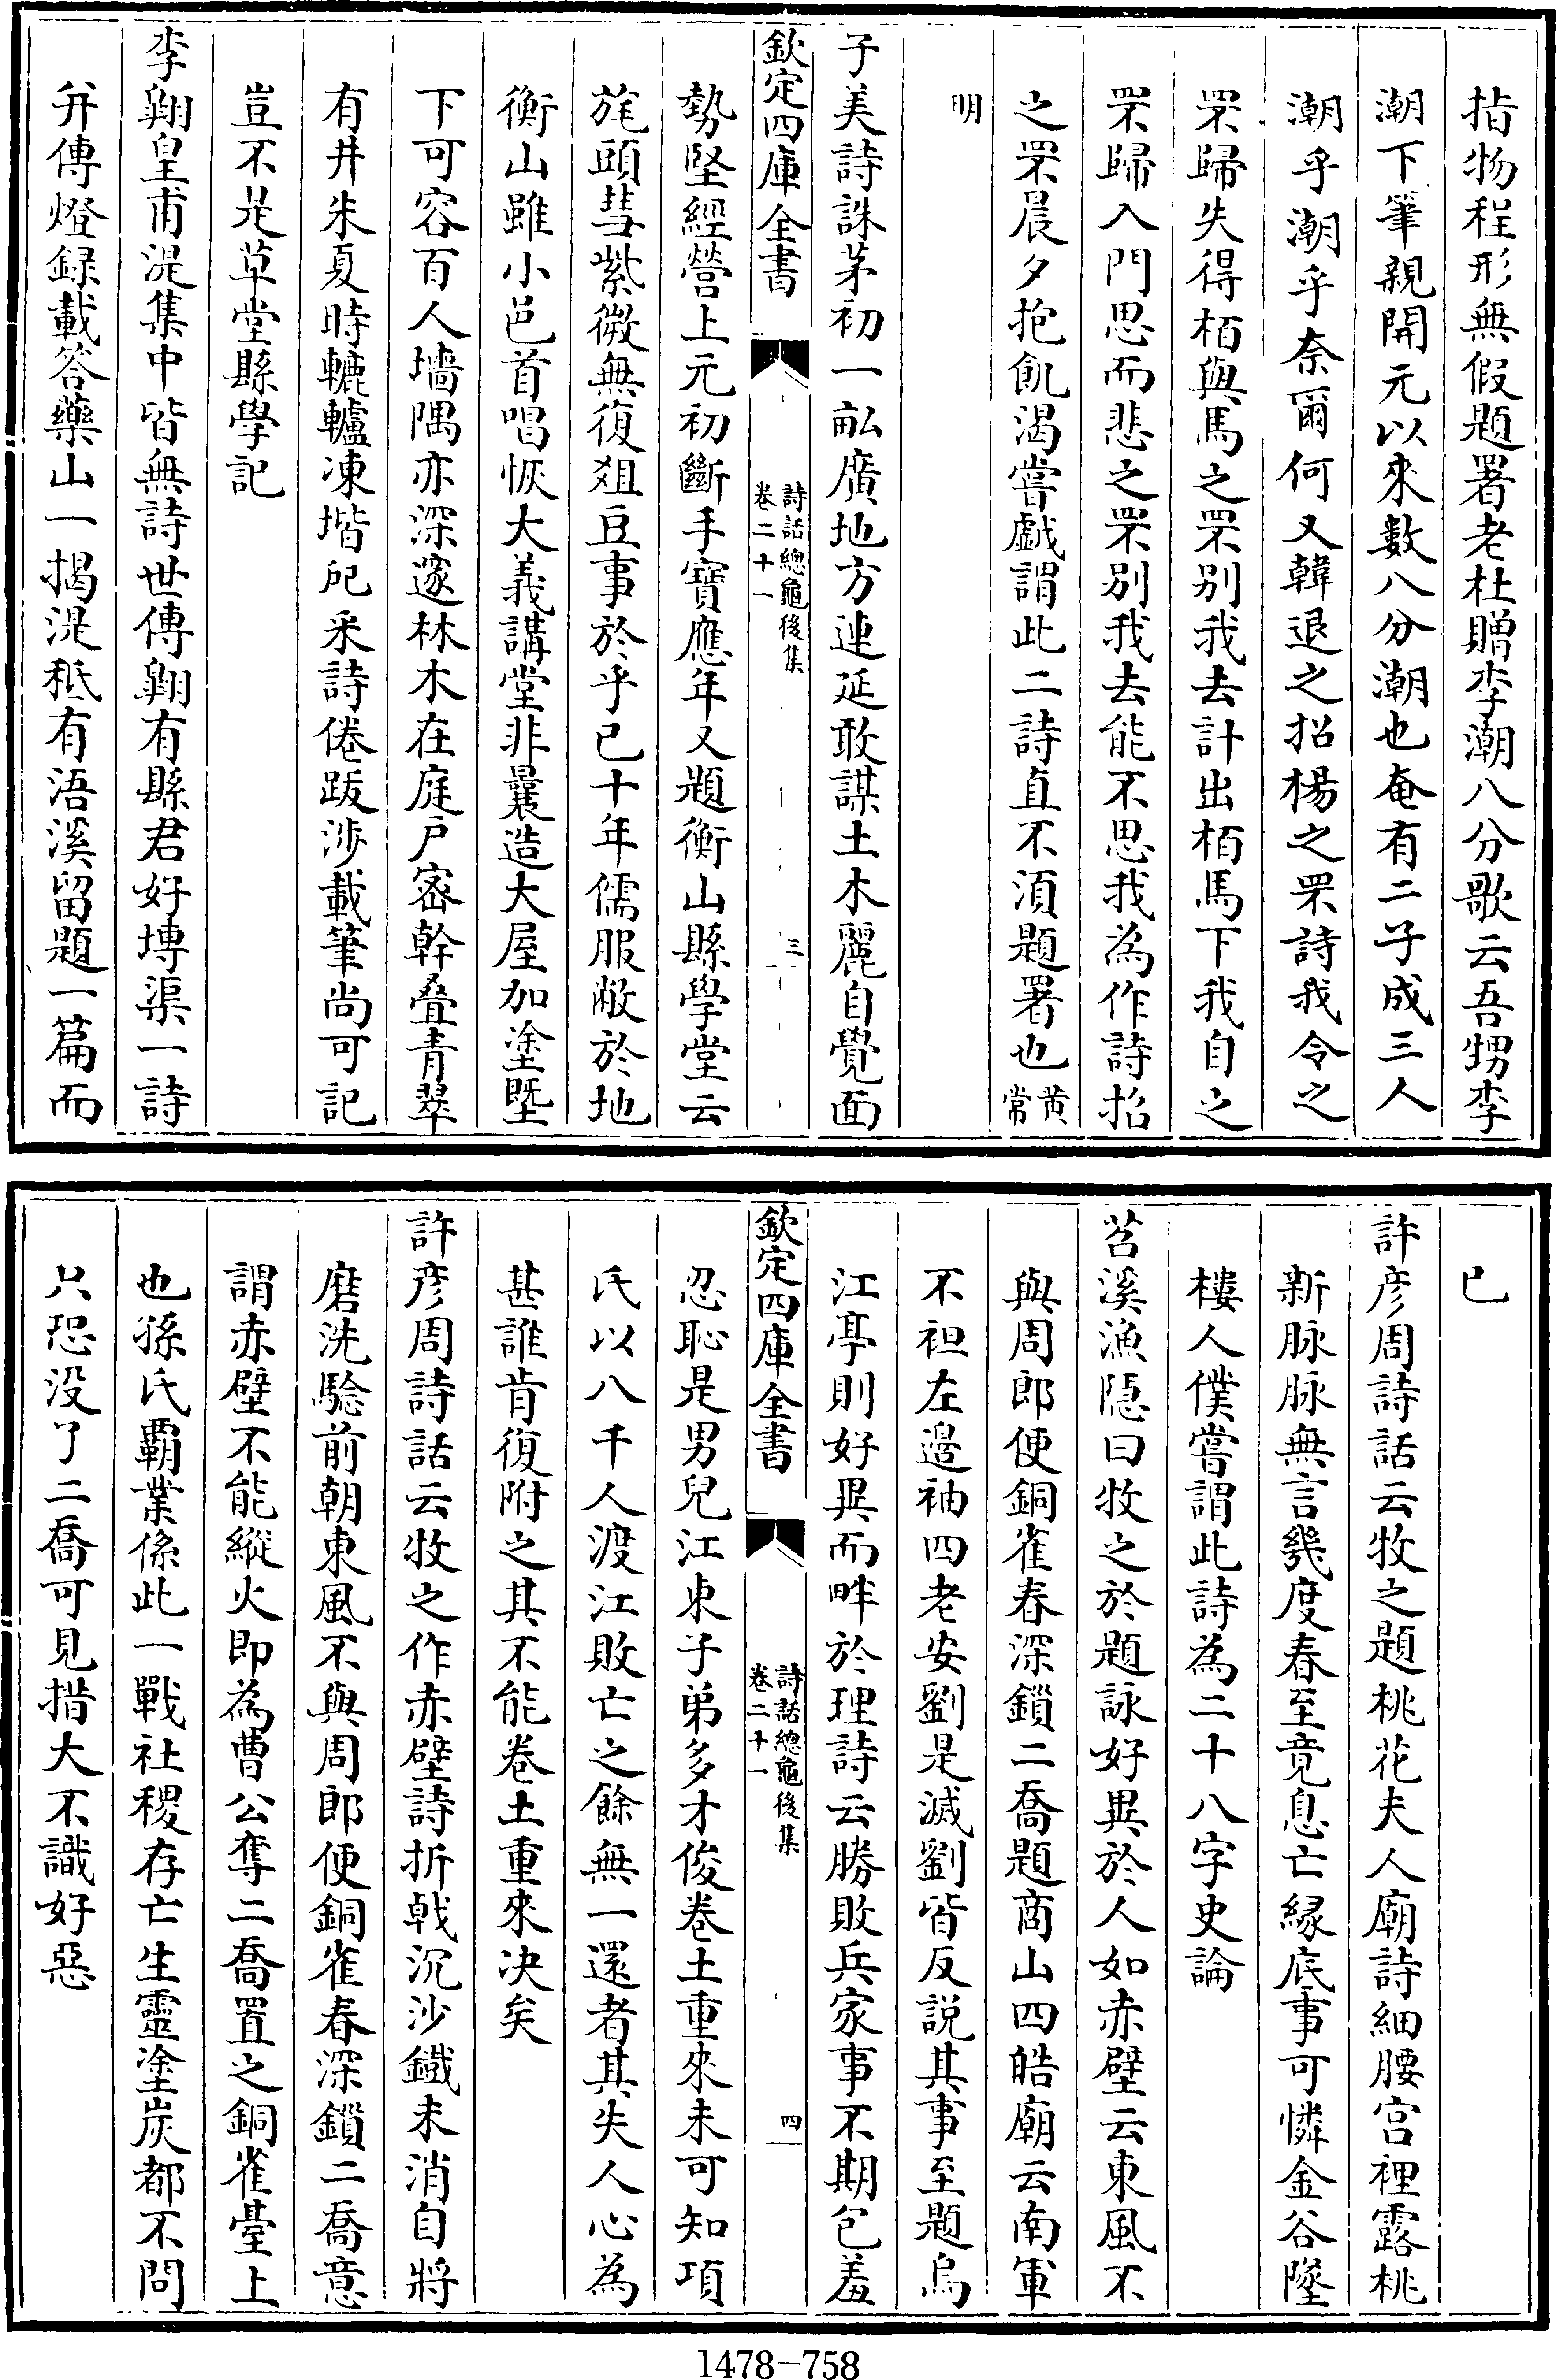 指物程形無假題署老杜贈李潮八分歌云吾甥李
潮下筆親開元以來數八分潮也奄有二子成三人
潮乎潮乎奈爾何又韓退之招楊之罘詩我令之
罘歸失得栢與馬之罘别我去計出栢馬下我自之
罘歸入門思而悲之罘别我去能不思我為作詩招
之罘晨夕抱飢渴嘗戯謂此二詩直不湏題署也黄常
明
子美詩誅茅初一畝廣地方連延敢謀土木麗自覺面
欽定四庫全書
詩話總龜後集
卷二十一
三
勢堅經營上元初斷手寳應年又題衡山縣學堂云
旄頭彗紫微無復俎豆事於乎已十年儒服敝於地
衡山雖小邑首唱恢大義講堂非曩造大屋加塗塈
下可容百人墻隅亦深邃林木在庭户宻幹叠青翠
有井朱夏時轆轤凍堦戺采詩倦跋渉載筆尚可記
豈不是草堂縣學記
李翺皇甫湜集中皆無詩世傳翺有縣君好塼渠一詩
并傳燈録載答藥山一揭湜秪有浯溪留題一篇而
已
許彦周詩話云牧之題桃花夫人廟詩細腰宫裡露桃
新脉脉無言幾度春至竟息亡縁底事可憐金谷墜
樓人僕嘗謂此詩為二十八字史論
苕溪漁隱曰牧之於題詠好異於人如赤壁云東風不
與周郎便銅雀春深鎖二喬題商山四皓廟云南軍
不袒左邉袖四老安劉是滅劉皆反説其事至題烏
江亭則好異而畔於理詩云勝敗兵家事不期包羞
欽定四庫全書
詩話總龜後集
卷二十一
四
忍恥是男兒江東子弟多才俊卷土重來未可知項
氏以八千人渡江敗亡之餘無一還者其失人心為
甚誰肯復附之其不能卷土重來决矣
許彦周詩話云牧之作赤壁詩折㦸沉沙鐵未消自將
磨洗驗前朝東風不與周郎便銅雀春深鎖二喬意
謂赤壁不能縱火即為曹公奪二喬置之銅雀臺上
也孫氏覇業係此一戰社稷存亡生靈塗炭都不問
只恐没了二喬可見措大不識好惡
1478-758